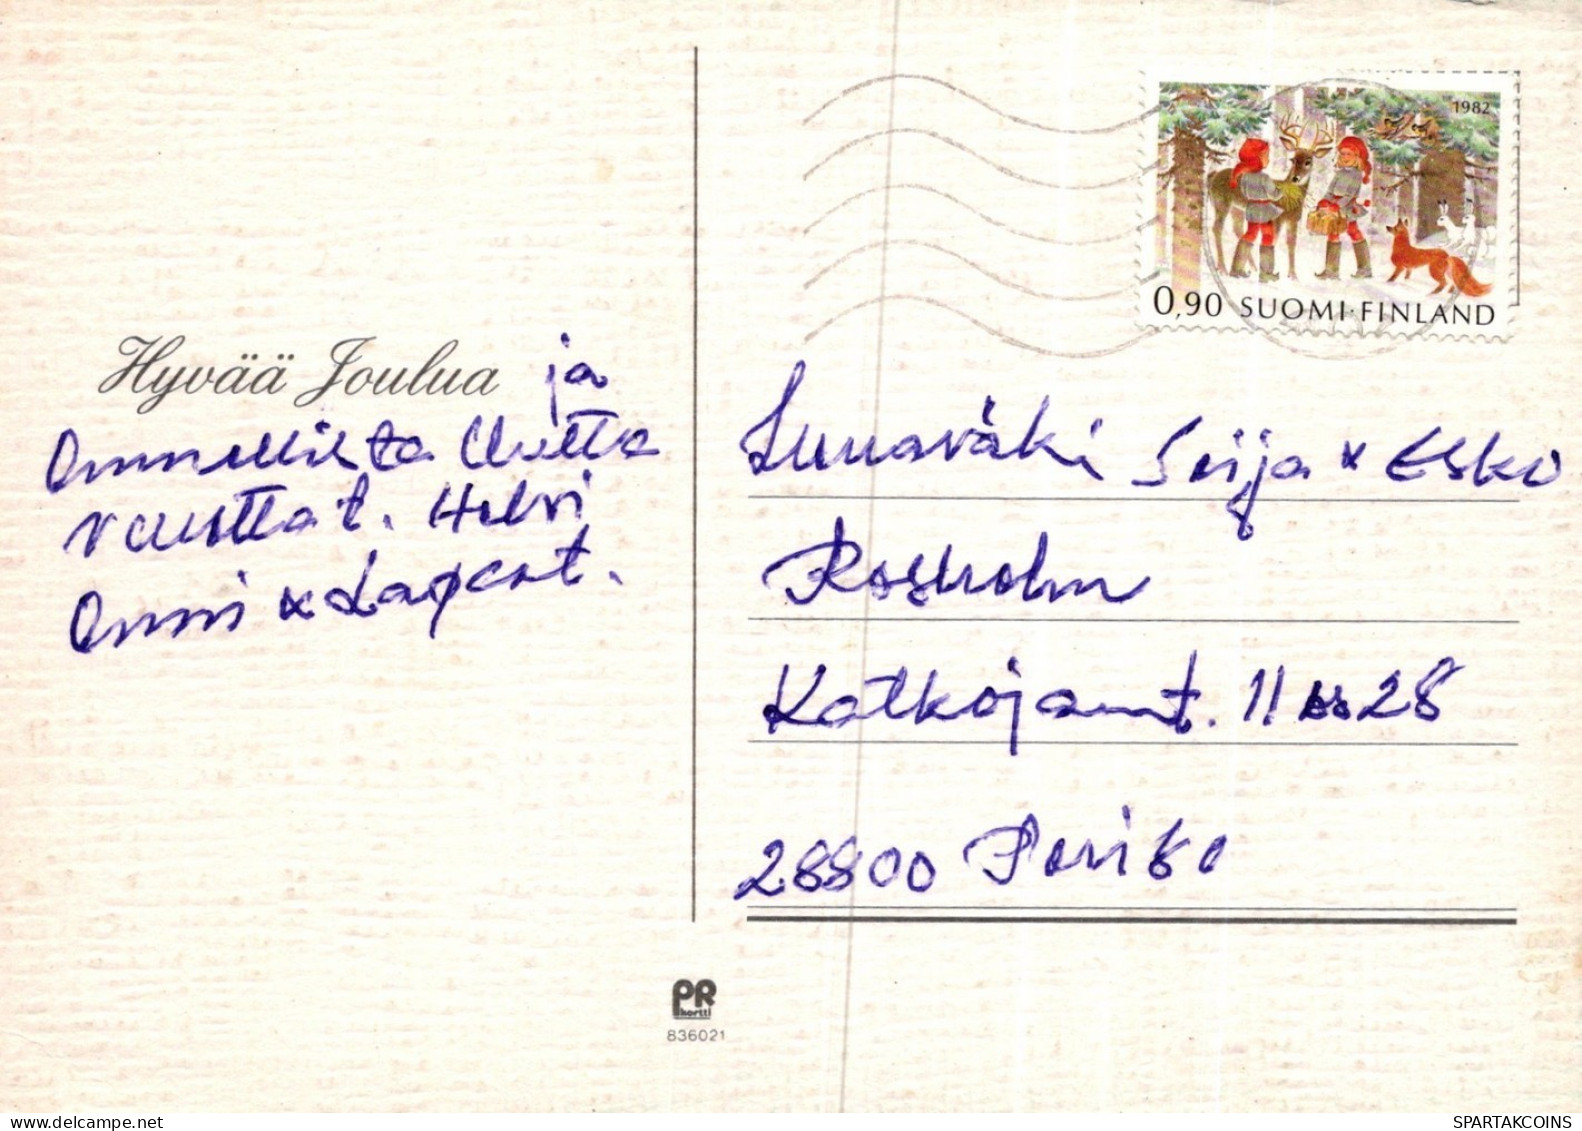 Hyvää Joulua ja
Onnellista Uutta
vuotta t. Helvi
Onni x Lapset.
1982
0,90 SUOMI·FINLAND
Seija x Esko
Rosholm
Katkojant. 11 28
28800 Pori 80
PR
kortti
836021
SPARTAKCOINS